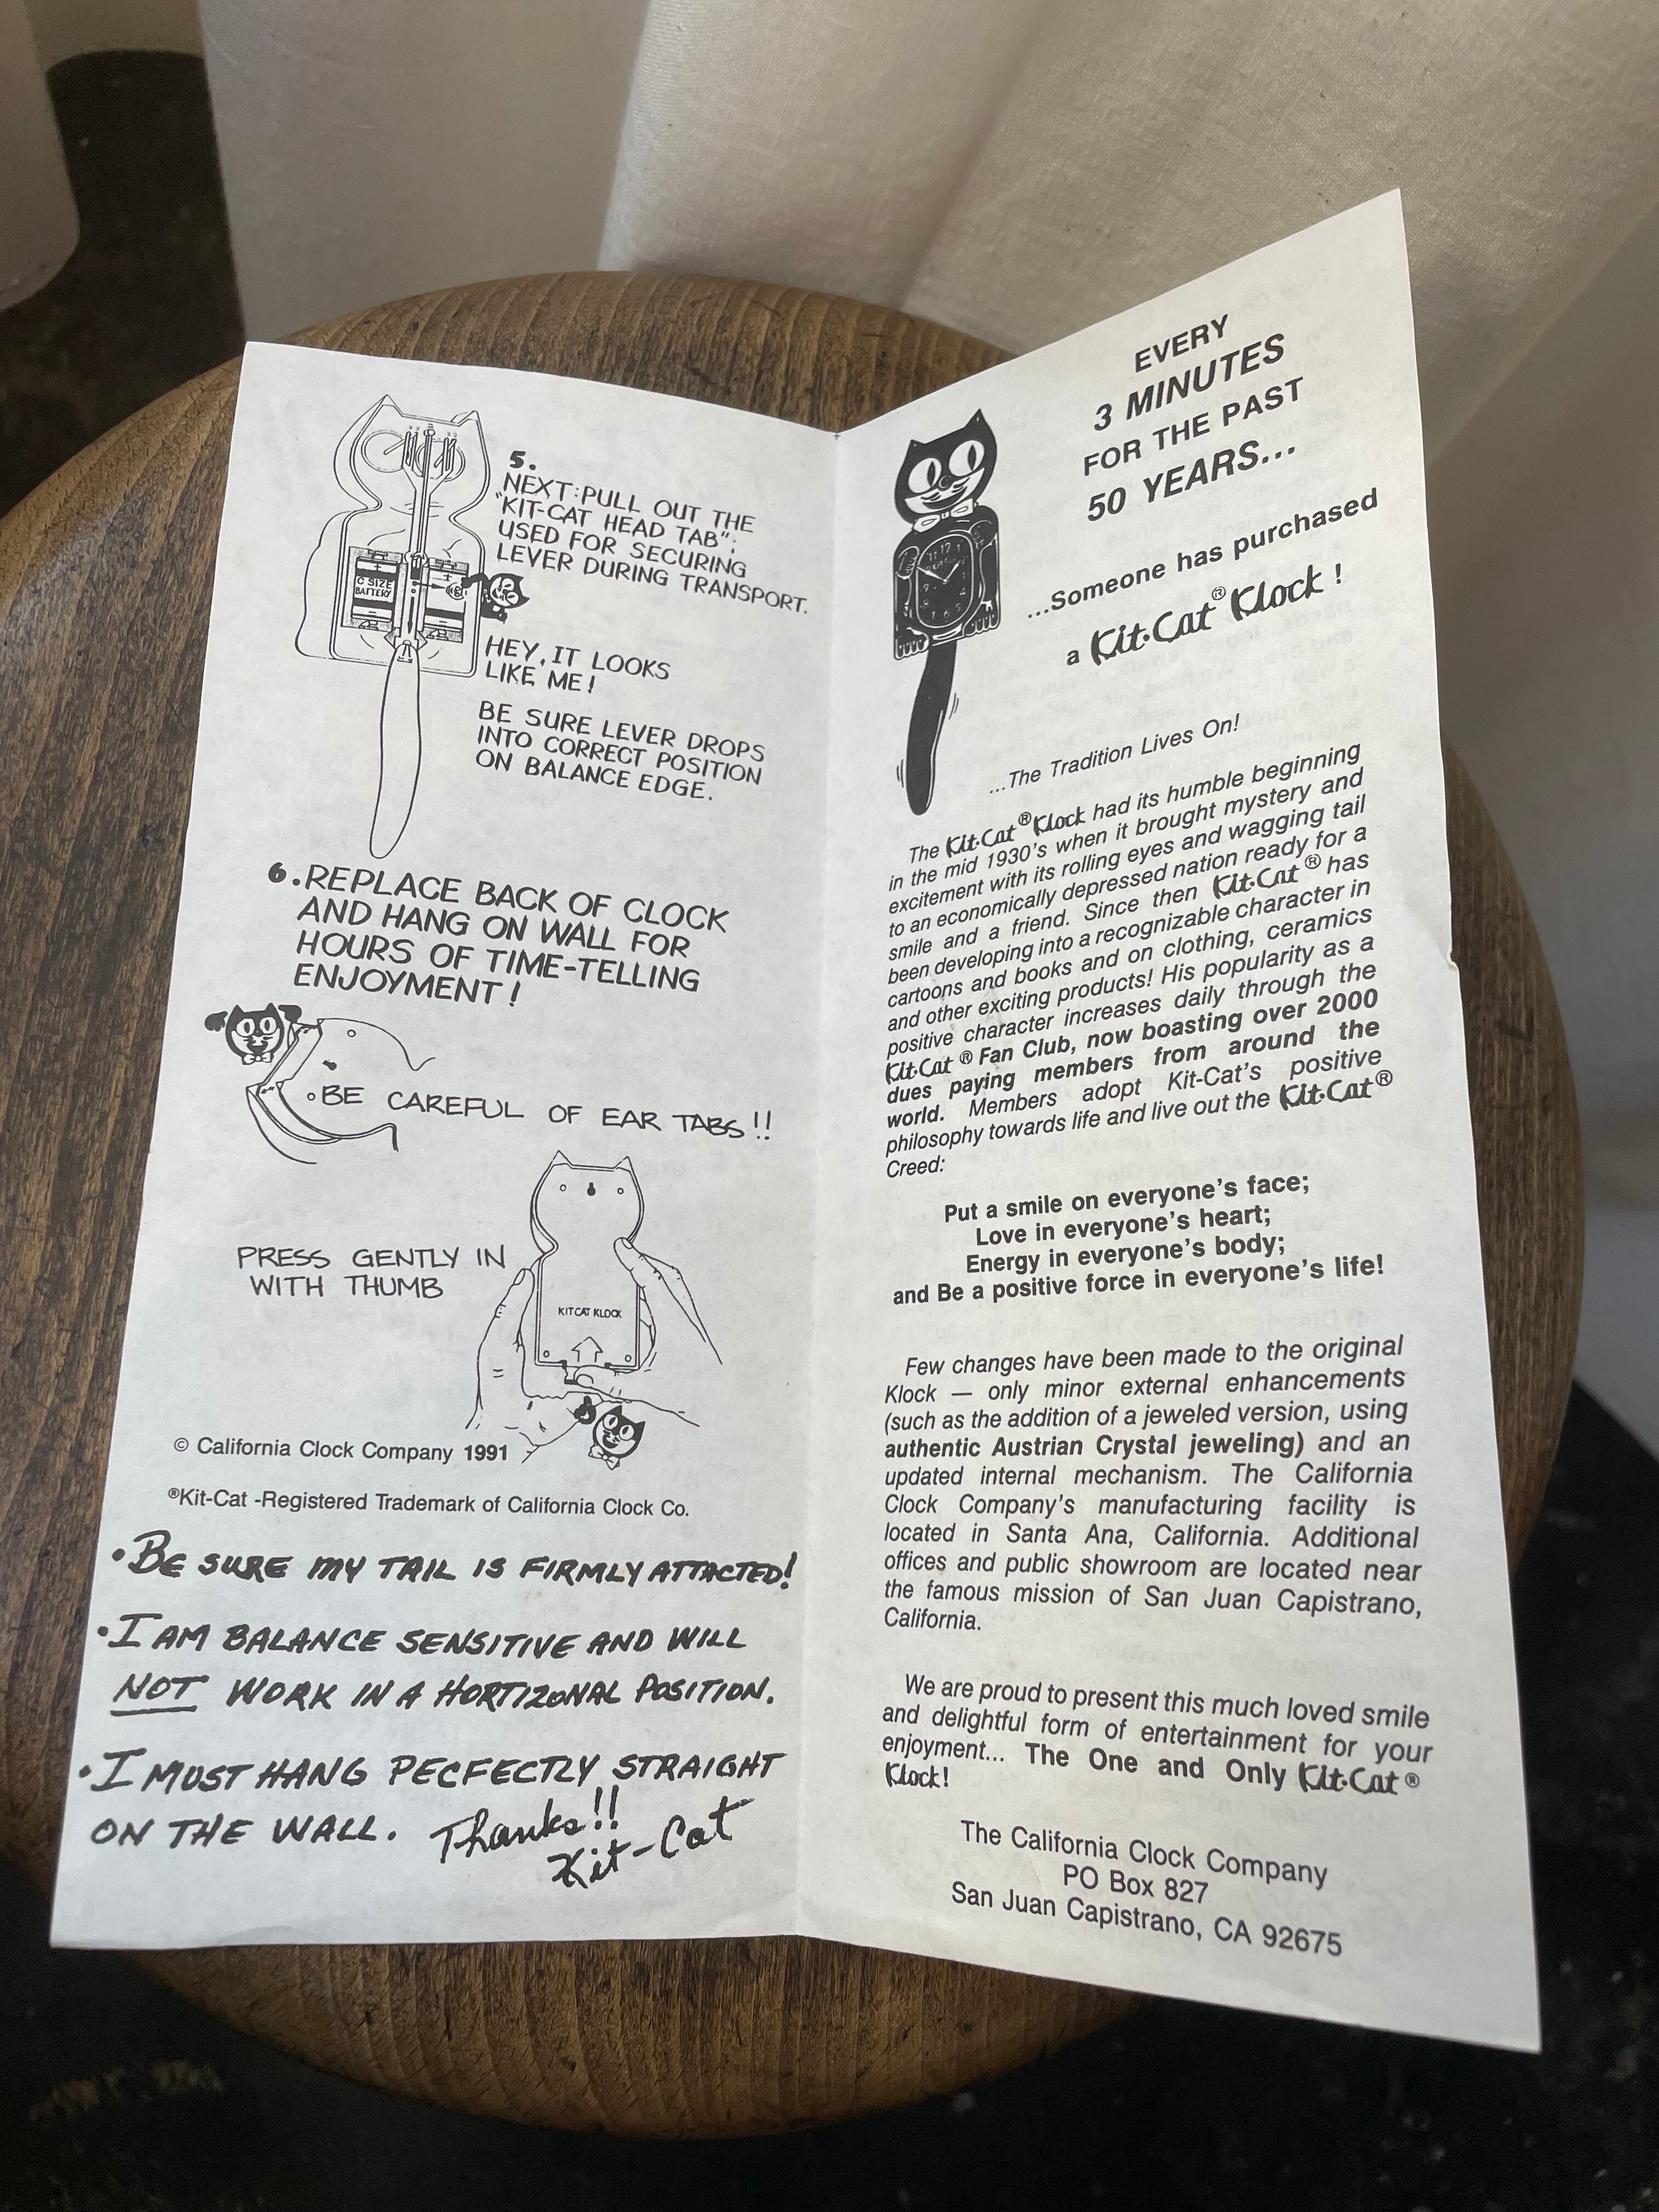 5.
NEXT: PULL OUT THE
"KIT-CAT HEAD TAB";
USED FOR SECURING
LEVER DURING TRANSPORT.
C SIZE
BATTERY
HEY, IT LOOKS
LIKE ME!
BE SURE LEVER DROPS
INTO CORRECT POSITION
ON BALANCE EDGE.
6. REPLACE BACK OF CLOCK
AND HANG ON WALL FOR
HOURS OF TIME-TELLING
ENJOYMENT!
BE CAREFUL OF EAR TABS!!
PRESS GENTLY IN
WITH THUMB
KIT CAT KLOCK
© California Clock Company 1991
®Kit-Cat -Registered Trademark of California Clock Co.
• BE SURE MY TAIL IS FIRMLY ATTACTED!
• I AM BALANCE SENSITIVE AND WILL
NOT WORK IN A HORTIZONAL POSITION.
• I MUST HANG PECFECTLY STRAIGHT
ON THE WALL. Thanks!!
Kit-Cat
EVERY
3 MINUTES
FOR THE PAST
50 YEARS...
...Someone has purchased
a Kit·Cat® Klock!
...The Tradition Lives On!
The Kit·Cat® Klock had its humble beginning
in the mid 1930's when it brought mystery and
excitement with its rolling eyes and wagging tail
to an economically depressed nation ready for a
smile and a friend. Since then Kit·Cat® has
been developing into a recognizable character in
cartoons and books and on clothing, ceramics
and other exciting products! His popularity as a
positive character increases daily through the
Kit·Cat® Fan Club, now boasting over 2000
dues paying members from around the
world. Members adopt Kit-Cat's positive
philosophy towards life and live out the Kit·Cat®
Creed:
Put a smile on everyone's face;
Love in everyone's heart;
Energy in everyone's body;
and Be a positive force in everyone's life!
Few changes have been made to the original
Klock — only minor external enhancements
(such as the addition of a jeweled version, using
authentic Austrian Crystal jeweling) and an
updated internal mechanism. The California
Clock Company's manufacturing facility is
located in Santa Ana, California. Additional
offices and public showroom are located near
the famous mission of San Juan Capistrano,
California.
We are proud to present this much loved smile
and delightful form of entertainment for your
enjoyment... The One and Only Kit·Cat®
Klock!
The California Clock Company
PO Box 827
San Juan Capistrano, CA 92675